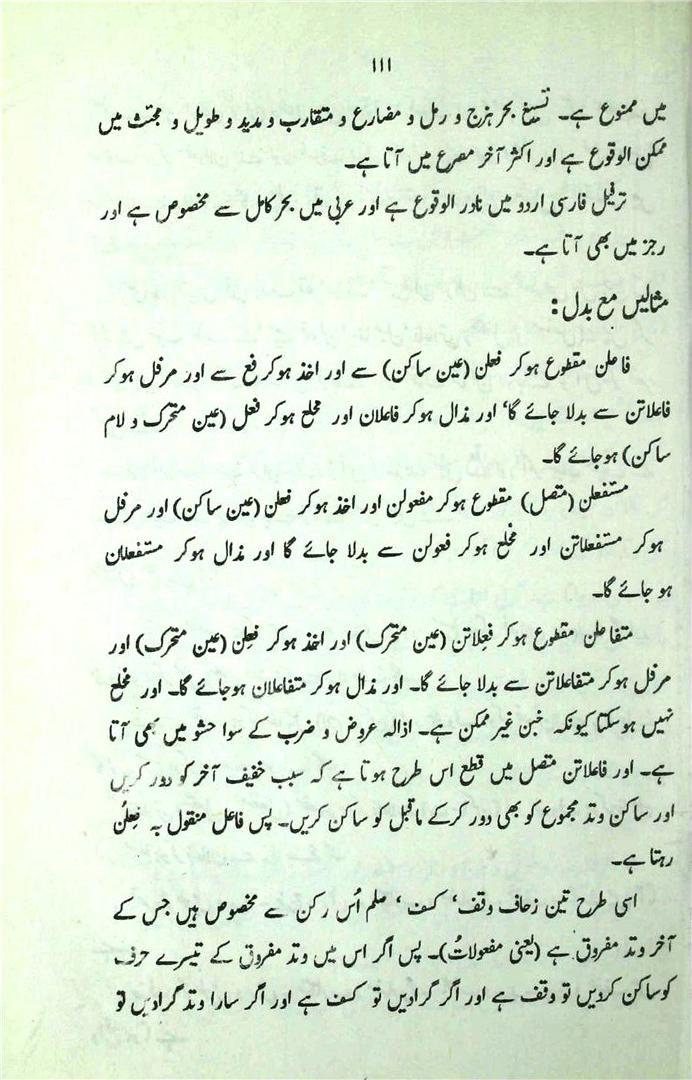 ۱۱۱
میں ممنوع ہے۔ تسبیغ بحر ہزج و رمل و مضارع و متقارب و مدید و طویل و مجتث میں
ممکن الوقوع ہے اور اکثر آخر مصرع میں آتا ہے۔
ترفیل فارسی اردو میں نادر الوقوع ہے اور عربی میں بحر کامل سے مخصوص ہے اور
رجز میں بھی آتا ہے۔
مثالیں مع بدل:
فاعلن مقطوع ہوکر فعلن (عین ساکن) سے اور اخذ ہوکر فع سے اور مرفل ہوکر
فاعلاتن سے بدلا جائے گا، اور مذال ہوکر فاعلان اور مخلع ہوکر فعل (عین متحرک و لام
ساکن) ہوجائے گا۔
مستفعلن (متصل) مقطوع ہوکر مفعولن اور اخذ ہوکر فعلن (عین ساکن) اور مرفل
ہوکر مستفعلاتن اور مخلع ہوکر فعولن سے بدلا جائے گا اور مذال ہوکر مستفعلان
ہو جائے گا۔
متفاعلن مقطوع ہوکر فعِلاتن (عین متحرک) اور اخذ ہوکر فعِلن (عین متحرک) اور
مرفل ہوکر متفاعلاتن سے بدلا جائے گا۔ اور مذال ہوکر متفاعلان ہوجائے گا۔ اور مخلع
نہیں ہوسکتا کیونکہ خبن غیر ممکن ہے۔ اذالہ عروض و ضرب کے سوا حشو میں بھی آتا
ہے۔ اور فاعلاتن متصل میں قطع اس طرح ہوتا ہے کہ سبب خفیف آخر کو دور کریں
اور ساکن وتد مجموع کو بھی دور کرکے ماقبل کو ساکن کریں۔ پس فاعل منقول بہ فعِلُن
رہتا ہے۔
اسی طرح تین زحاف وقف، کسف، صلم اُس رکن سے مخصوص ہیں جس کے
آخر وتد مفروق ہے (یعنی مفعولاتُ)۔ پس اگر اس میں وتد مفروق کے تیسرے حرف
کو ساکن کردیں تو وقف ہے اور اگر گرادیں تو کسف ہے اور اگر سارا وتد گرادیں تو